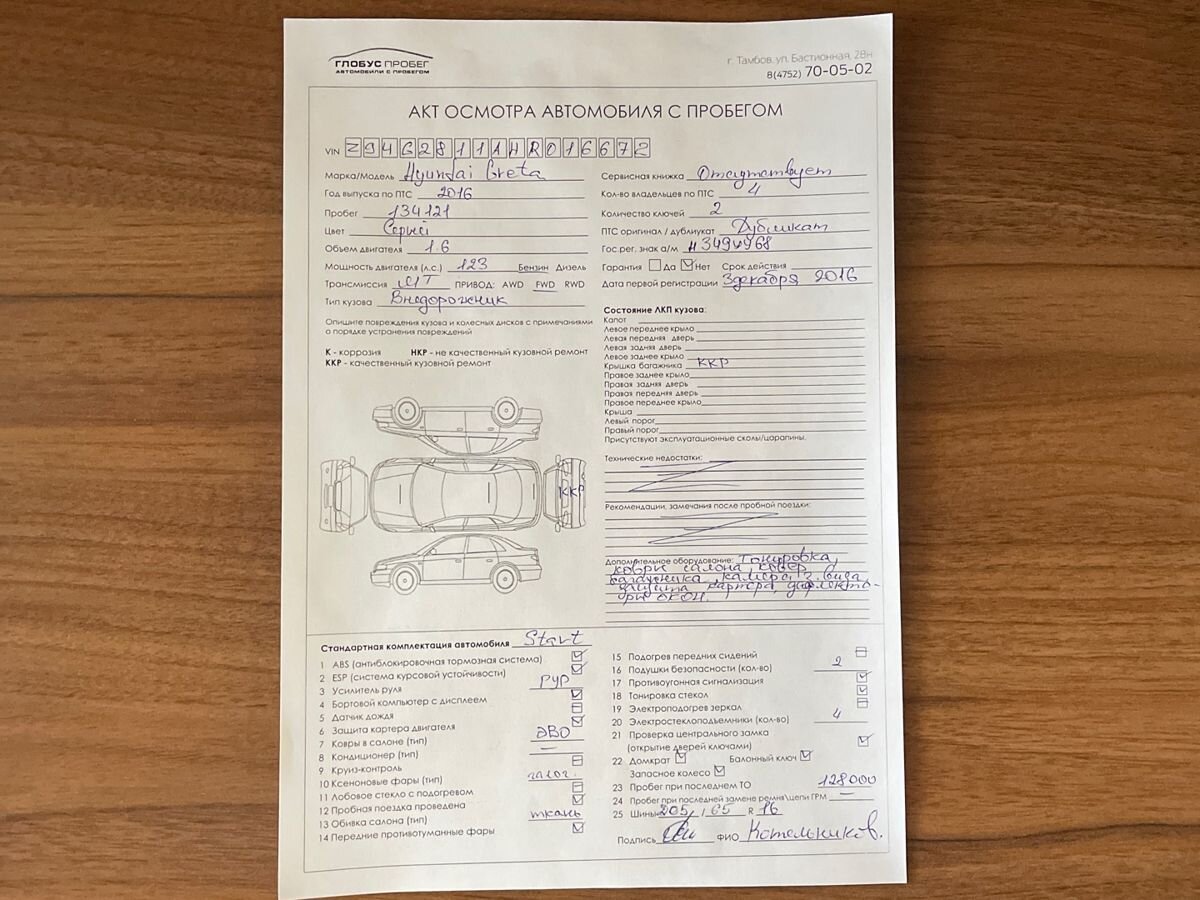 ГЛОБУС ПРОБЕГ
АВТОМОБИЛИ С ПРОБЕГОМ
г. Тамбов, ул. Бастионная, 28н
8(4752) 70-05-02
АКТ ОСМОТРА АВТОМОБИЛЯ С ПРОБЕГОМ
VIN Z94G2811AHR016672
Марка/Модель Hyundai Creta
Год выпуска по ПТС 2016
Пробег 134121
Цвет Серый
Объем двигателя 1.6
Мощность двигателя (л.с.) 123 Бензин Дизель
Трансмиссия МТ ПРИВОД: AWD FWD RWD
Тип кузова Внедорожник
Опишите повреждения кузова и колесных дисков с примечаниями
о порядке устранения повреждений
К - коррозия НКР - не качественный кузовной ремонт
ККР - качественный кузовной ремонт
ККР
Сервисная книжка Отсутствует
Кол-во владельцев по ПТС 4
Количество ключей 2
ПТС оригинал / дубликат Дубликат
Гос.рег. знак а/м Н349УУ68
Гарантия Да Нет Срок действия
Дата первой регистрации 3 декабря 2016
Состояние ЛКП кузова:
Капот
Левое переднее крыло
Левая передняя дверь
Левая задняя дверь
Левое заднее крыло
Крышка багажника ККР
Правое заднее крыло
Правая задняя дверь
Правая передняя дверь
Правое переднее крыло
Крыша
Левый порог
Правый порог
Присутствуют эксплуатационные сколы/царапины.
Технические недостатки:
Рекомендации, замечания после пробной поездки:
Дополнительное оборудование: Тонировка,
коври салона, ковер
багажника, камера з. вида,
защита картера, дефлекто-
ры окон.
Стандартная комплектация автомобиля Start
1 ABS (антиблокировочная тормозная система)
2 ESP (система курсовой устойчивости)
3 Усилитель руля РУР
4 Бортовой компьютер с дисплеем
5 Датчик дождя
6 Защита картера двигателя
7 Ковры в салоне (тип) ЭВО
8 Кондиционер (тип) —
9 Круиз-контроль
10 Ксеноновые фары (тип) галог.
11 Лобовое стекло с подогревом
12 Пробная поездка проведена
13 Обивка салона (тип) ткань
14 Передние противотуманные фары
15 Подогрев передних сидений
16 Подушки безопасности (кол-во) 2
17 Противоугонная сигнализация
18 Тонировка стекол
19 Электроподогрев зеркал
20 Электростеклоподъемники (кол-во) 4
21 Проверка центрального замка
(открытие дверей ключами)
22 Домкрат Балонный ключ
Запасное колесо
23 Пробег при последнем ТО 128000
24 Пробег при последней замене ремня\цепи ГРМ —
25 Шины 205 / 65 R 16
Подпись ФИО Котельников.